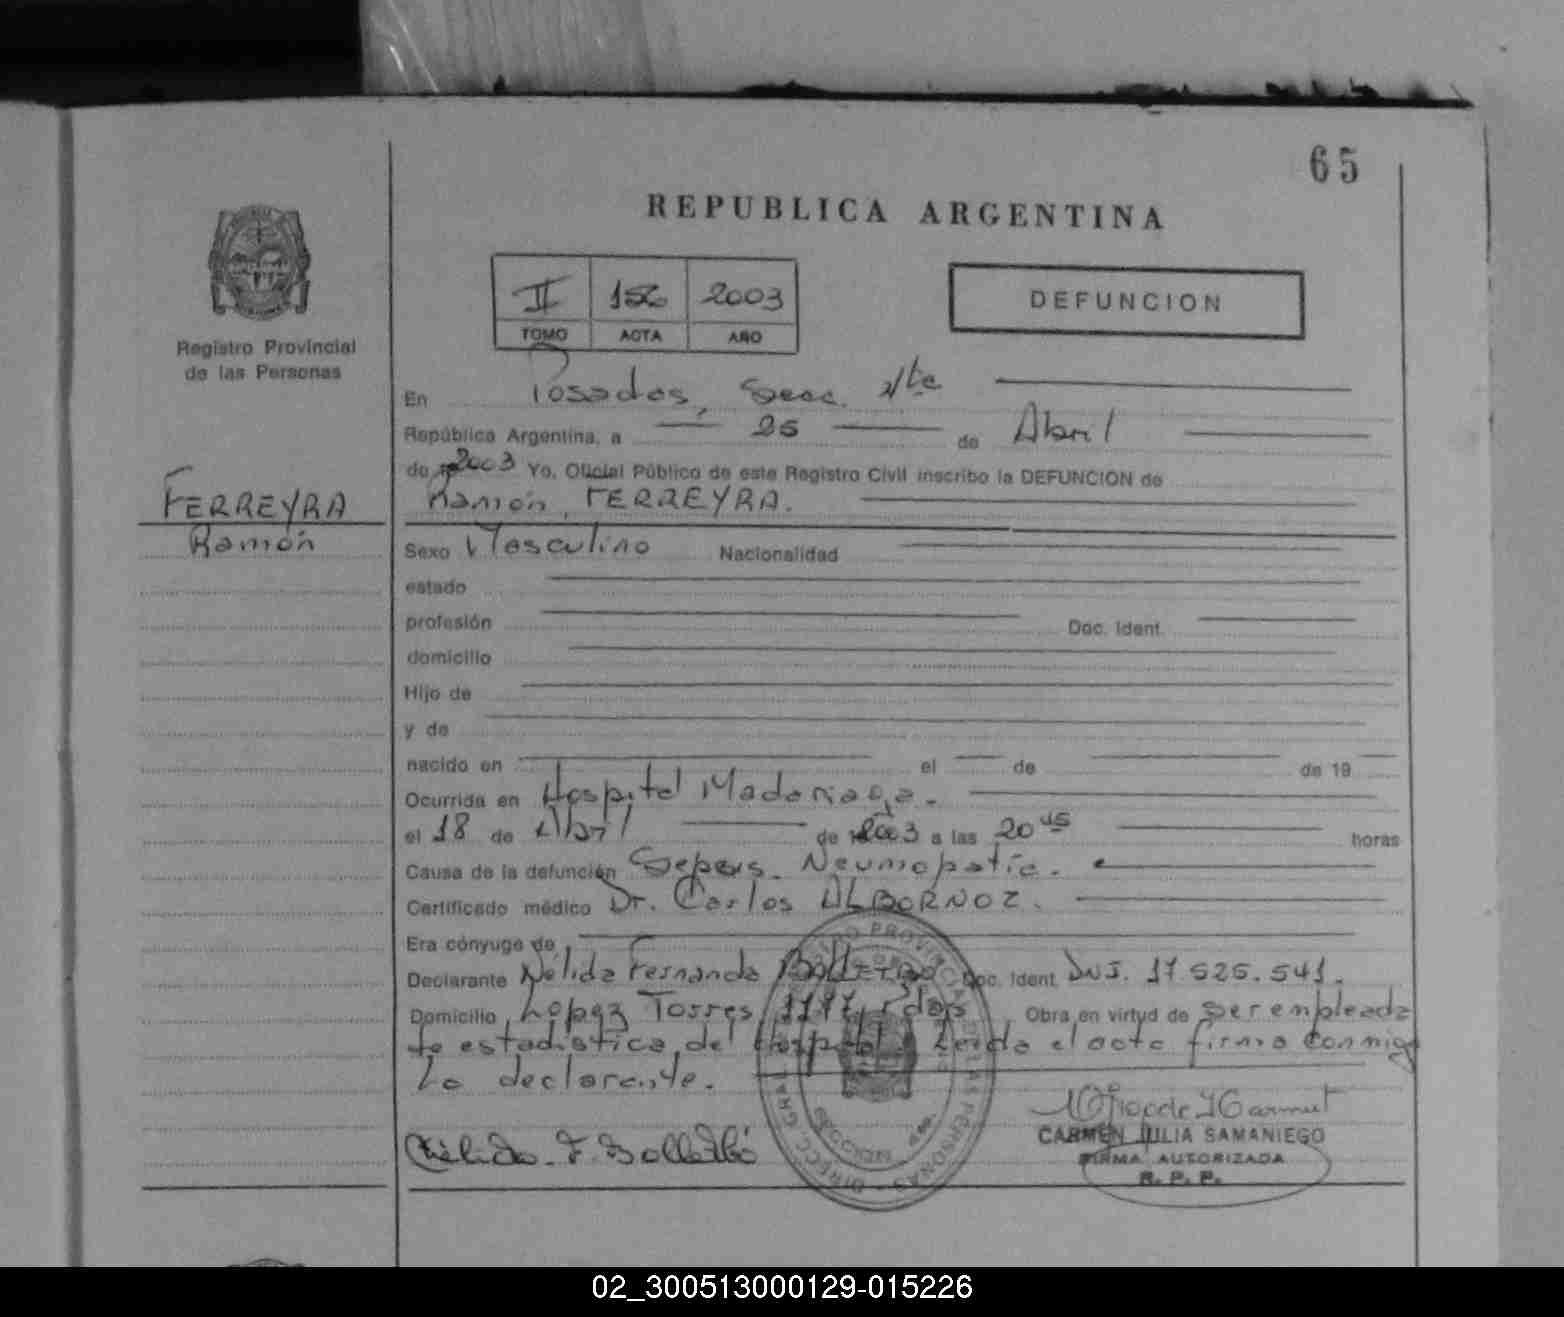 65
REPUBLICA ARGENTINA
II 156 2003
TOMO ACTA AÑO
DEFUNCION
Registro Provincial
de las Personas
FERREYRA
Ramón
En Posadas, Secc. 4ta
República Argentina, a 25 de Abril
de 2003 Yo, Oficial Público de este Registro Civil inscribo la DEFUNCION de
Ramón, FERREYRA.
Sexo Masculino Nacionalidad
estado
profesión Doc. Ident.
domicilio
Hijo de
y de
nacido en el de de 19
Ocurrida en Hospital Madariaga.
el 18 de Abril de 2003 a las 20 45 horas
Causa de la defunción Sepsis. Neumopatía.
Certificado médico Dr. Carlos ALBORNOZ.
Era cónyuge de
Declarante Nélida Fernanda Doc. Ident. DNI. 17.525.541.
Domicilio Lopez Torres 1177, Pdas Obra en virtud de ser empleada
de estadistica del Hospital. Leída el acta firma conmigo
La declarante.
CARMEN JULIA SAMANIEGO
FIRMA AUTORIZADA
R. P. P.
02_300513000129-015226